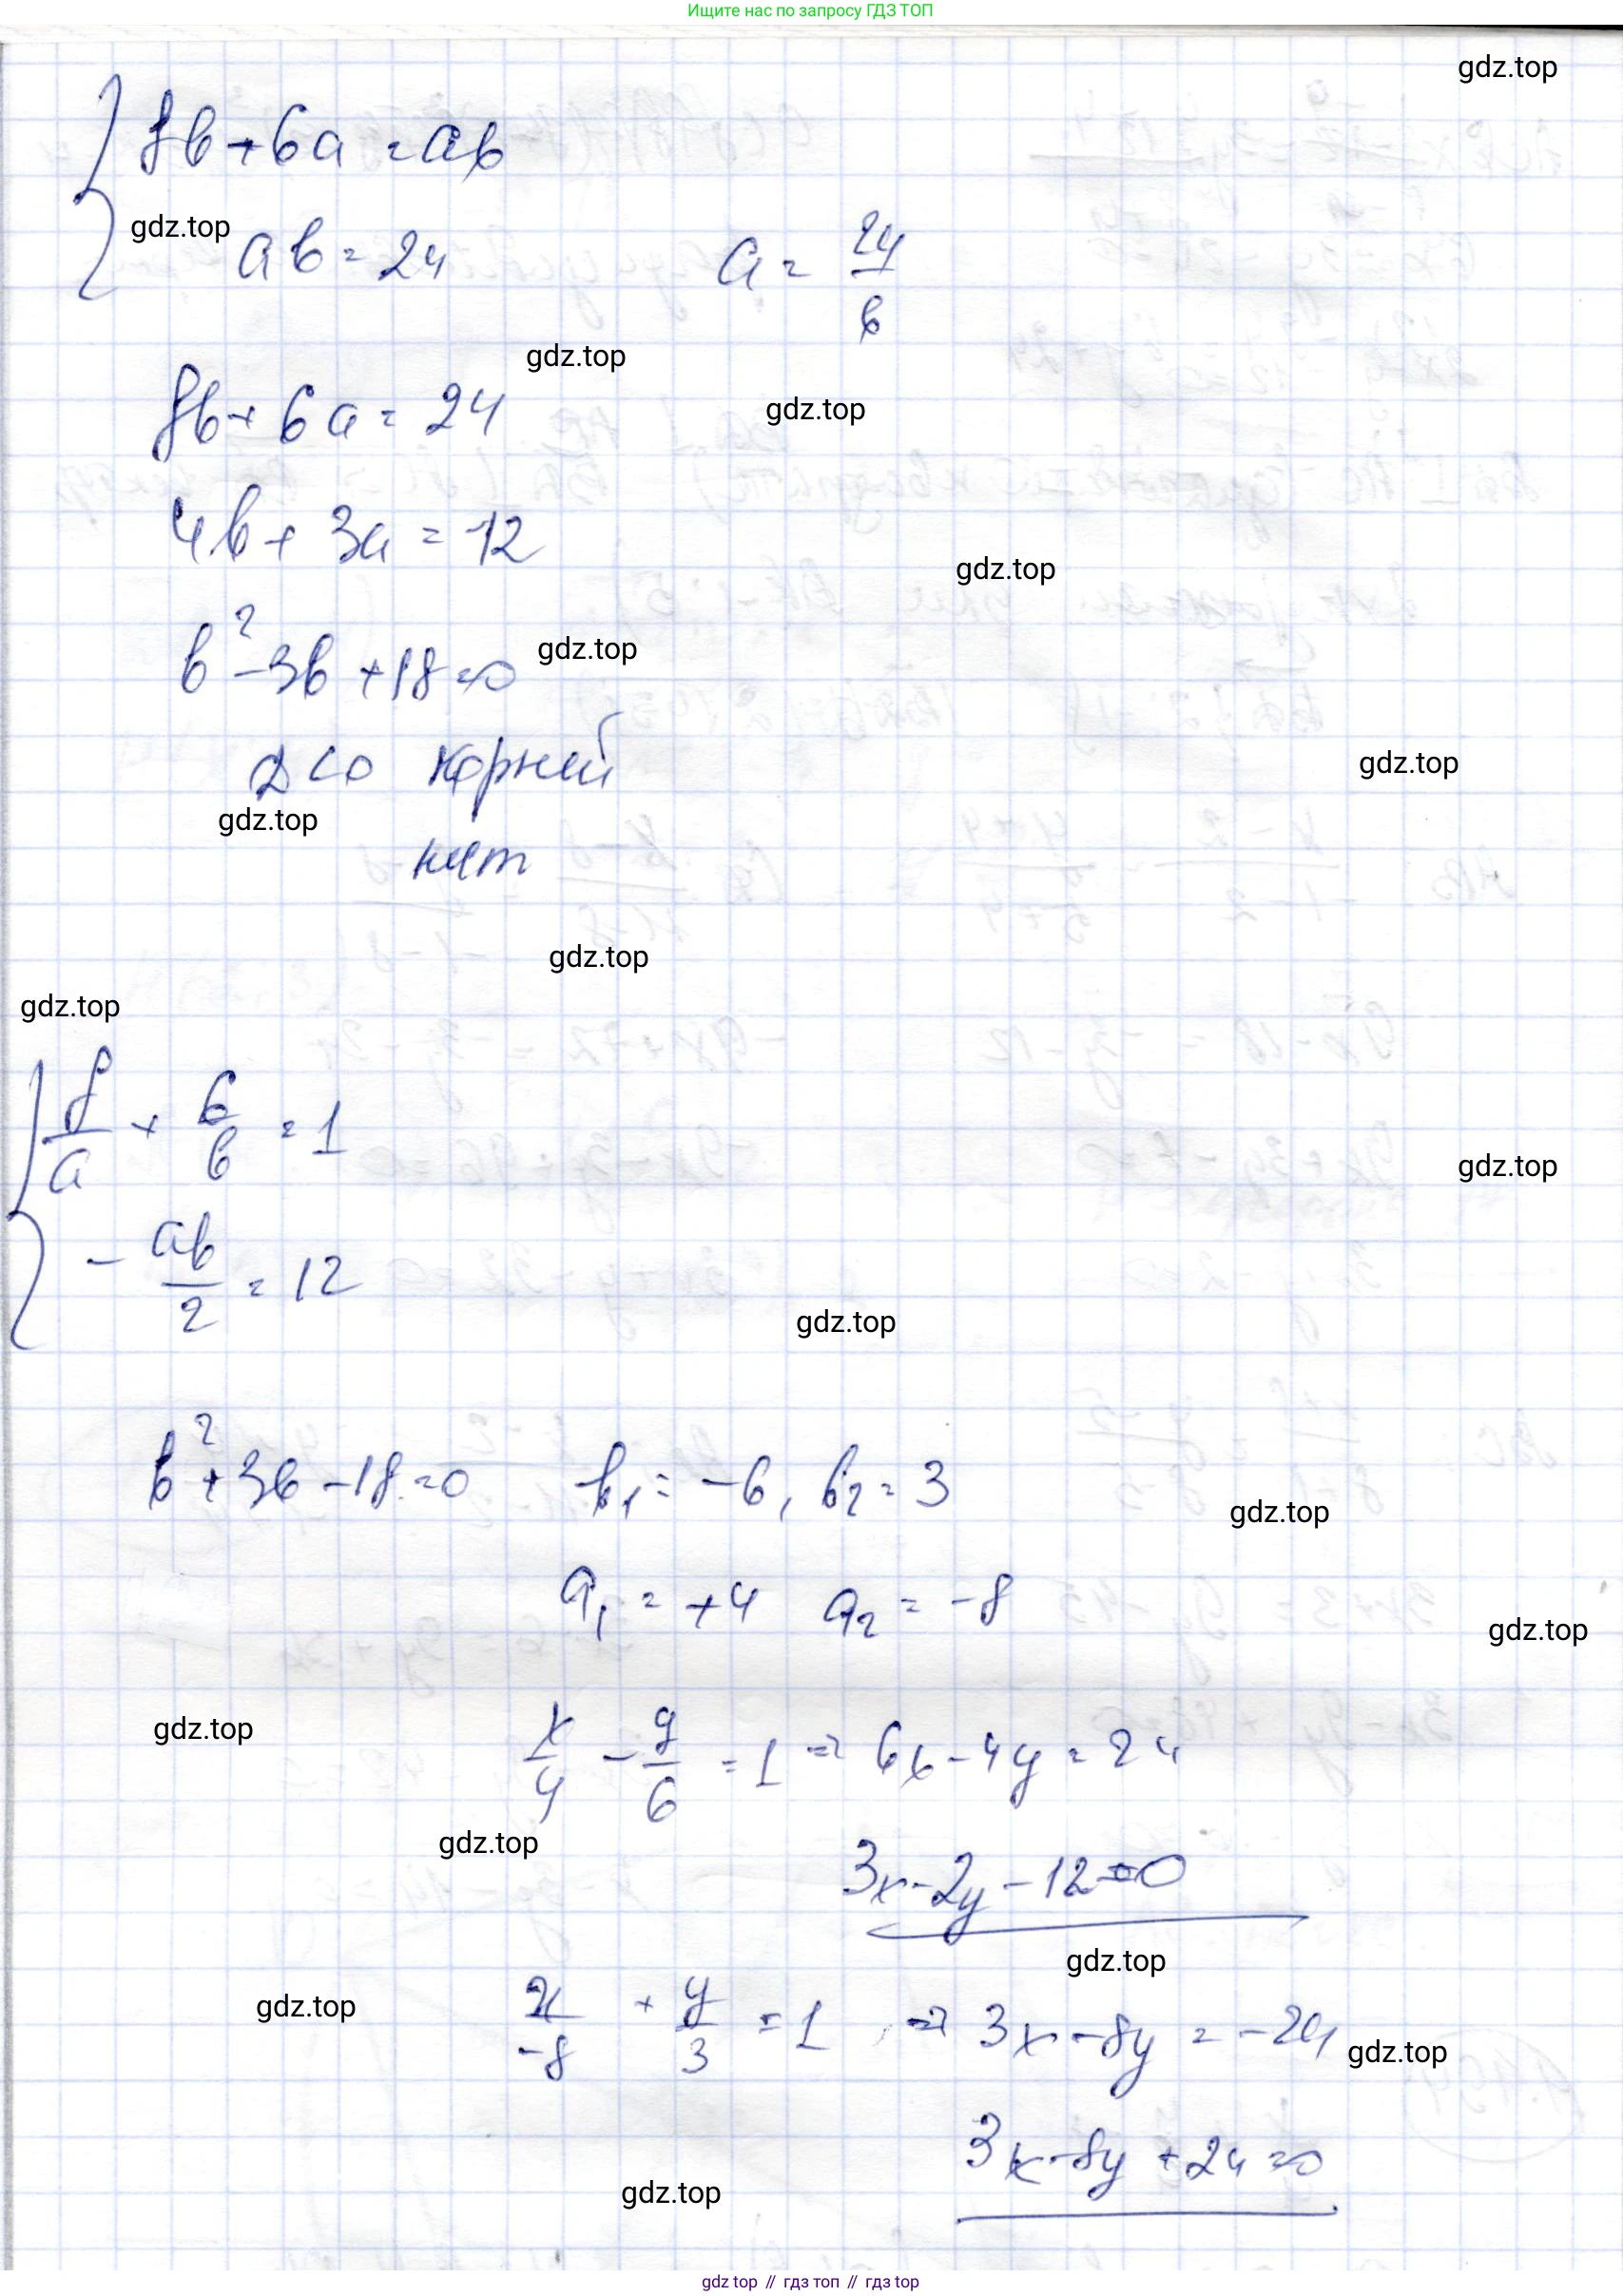 Ищите нас по запросу ГДЗ ТОП
gdz.top
8b + 6a = ab
gdz.top
ab = 24
a = 24/b
gdz.top
8b + 6a = 24
gdz.top
4b + 3a = 12
gdz.top
b² - 3b + 18 = 0
gdz.top
D < 0 корней
gdz.top
gdz.top
нет
gdz.top
gdz.top
8/a + 6/b = 1
gdz.top
- ab/2 = 12
gdz.top
b² + 3b - 18 = 0 b₁ = -6, b₂ = 3
gdz.top
a₁ = +4 a₂ = -8
gdz.top
gdz.top
x/4 - y/6 = 1 ⇒ 6x - 4y = 24
gdz.top
3x - 2y - 12 = 0
gdz.top
gdz.top
x/-8 + y/3 = 1 ⇒ 3x - 8y = -24
gdz.top
3x - 8y + 24 = 0
gdz.top
gdz top // гдз топ // гдз top